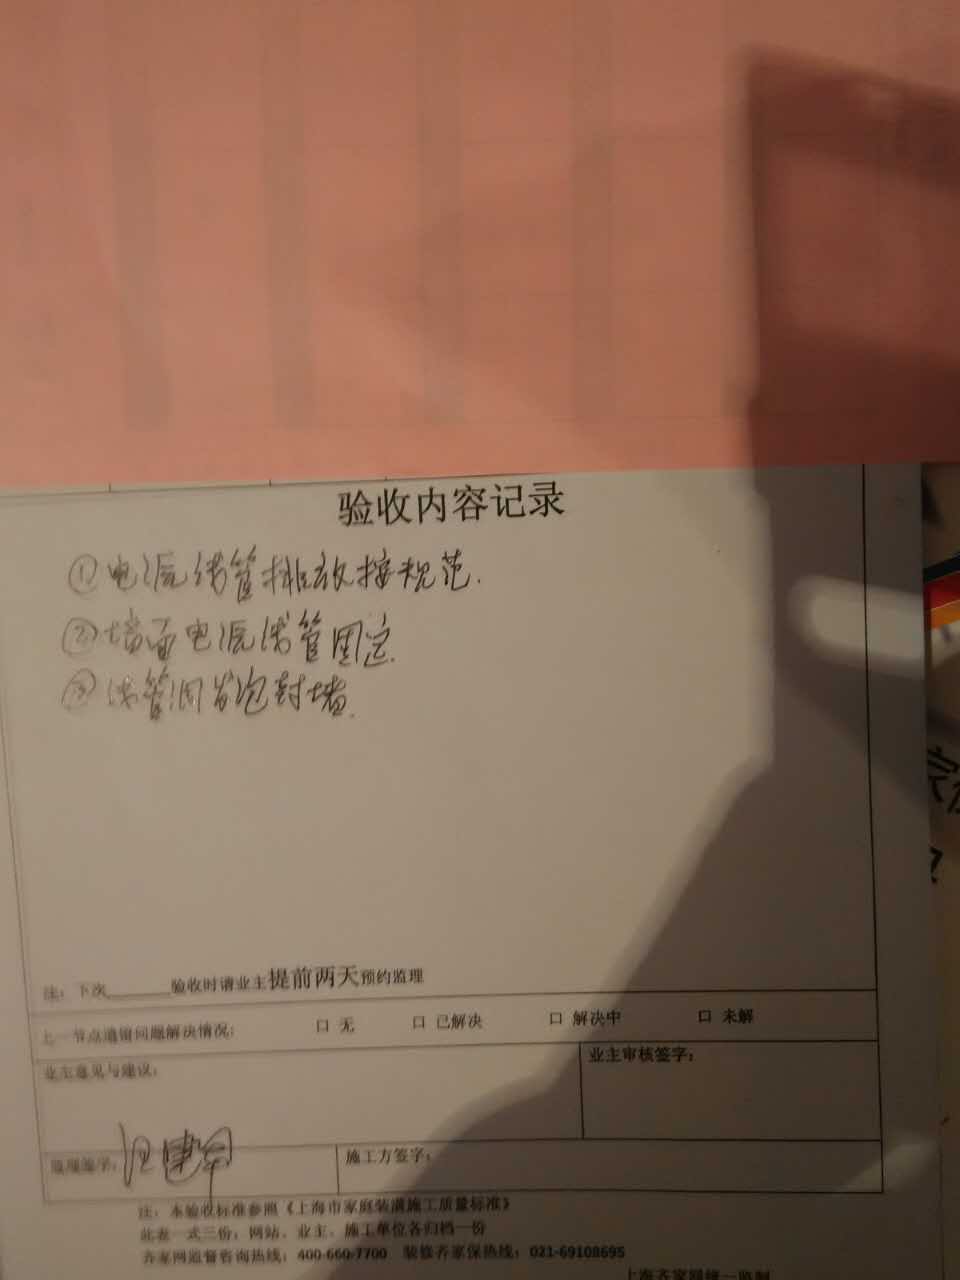 验收内容记录
①电源线管排放按规范.
②墙面电源线管固定.
③线管洞发泡封堵.
注：下次______验收时请业主提前两天预约监理
上一节点遗留问题解决情况: 口 无 口 已解决 口 解决中 口 未解
业主意见与建议： 业主审核签字：
监理签字: 施工方签字：
注：本验收标准参照《上海市家庭装潢施工质量标准》
此表一式三份：网站、业主、施工单位各归档一份
齐家网监督咨询热线：400-660-7700 装修齐家保热线：021-69108695
上海齐家网统一监制